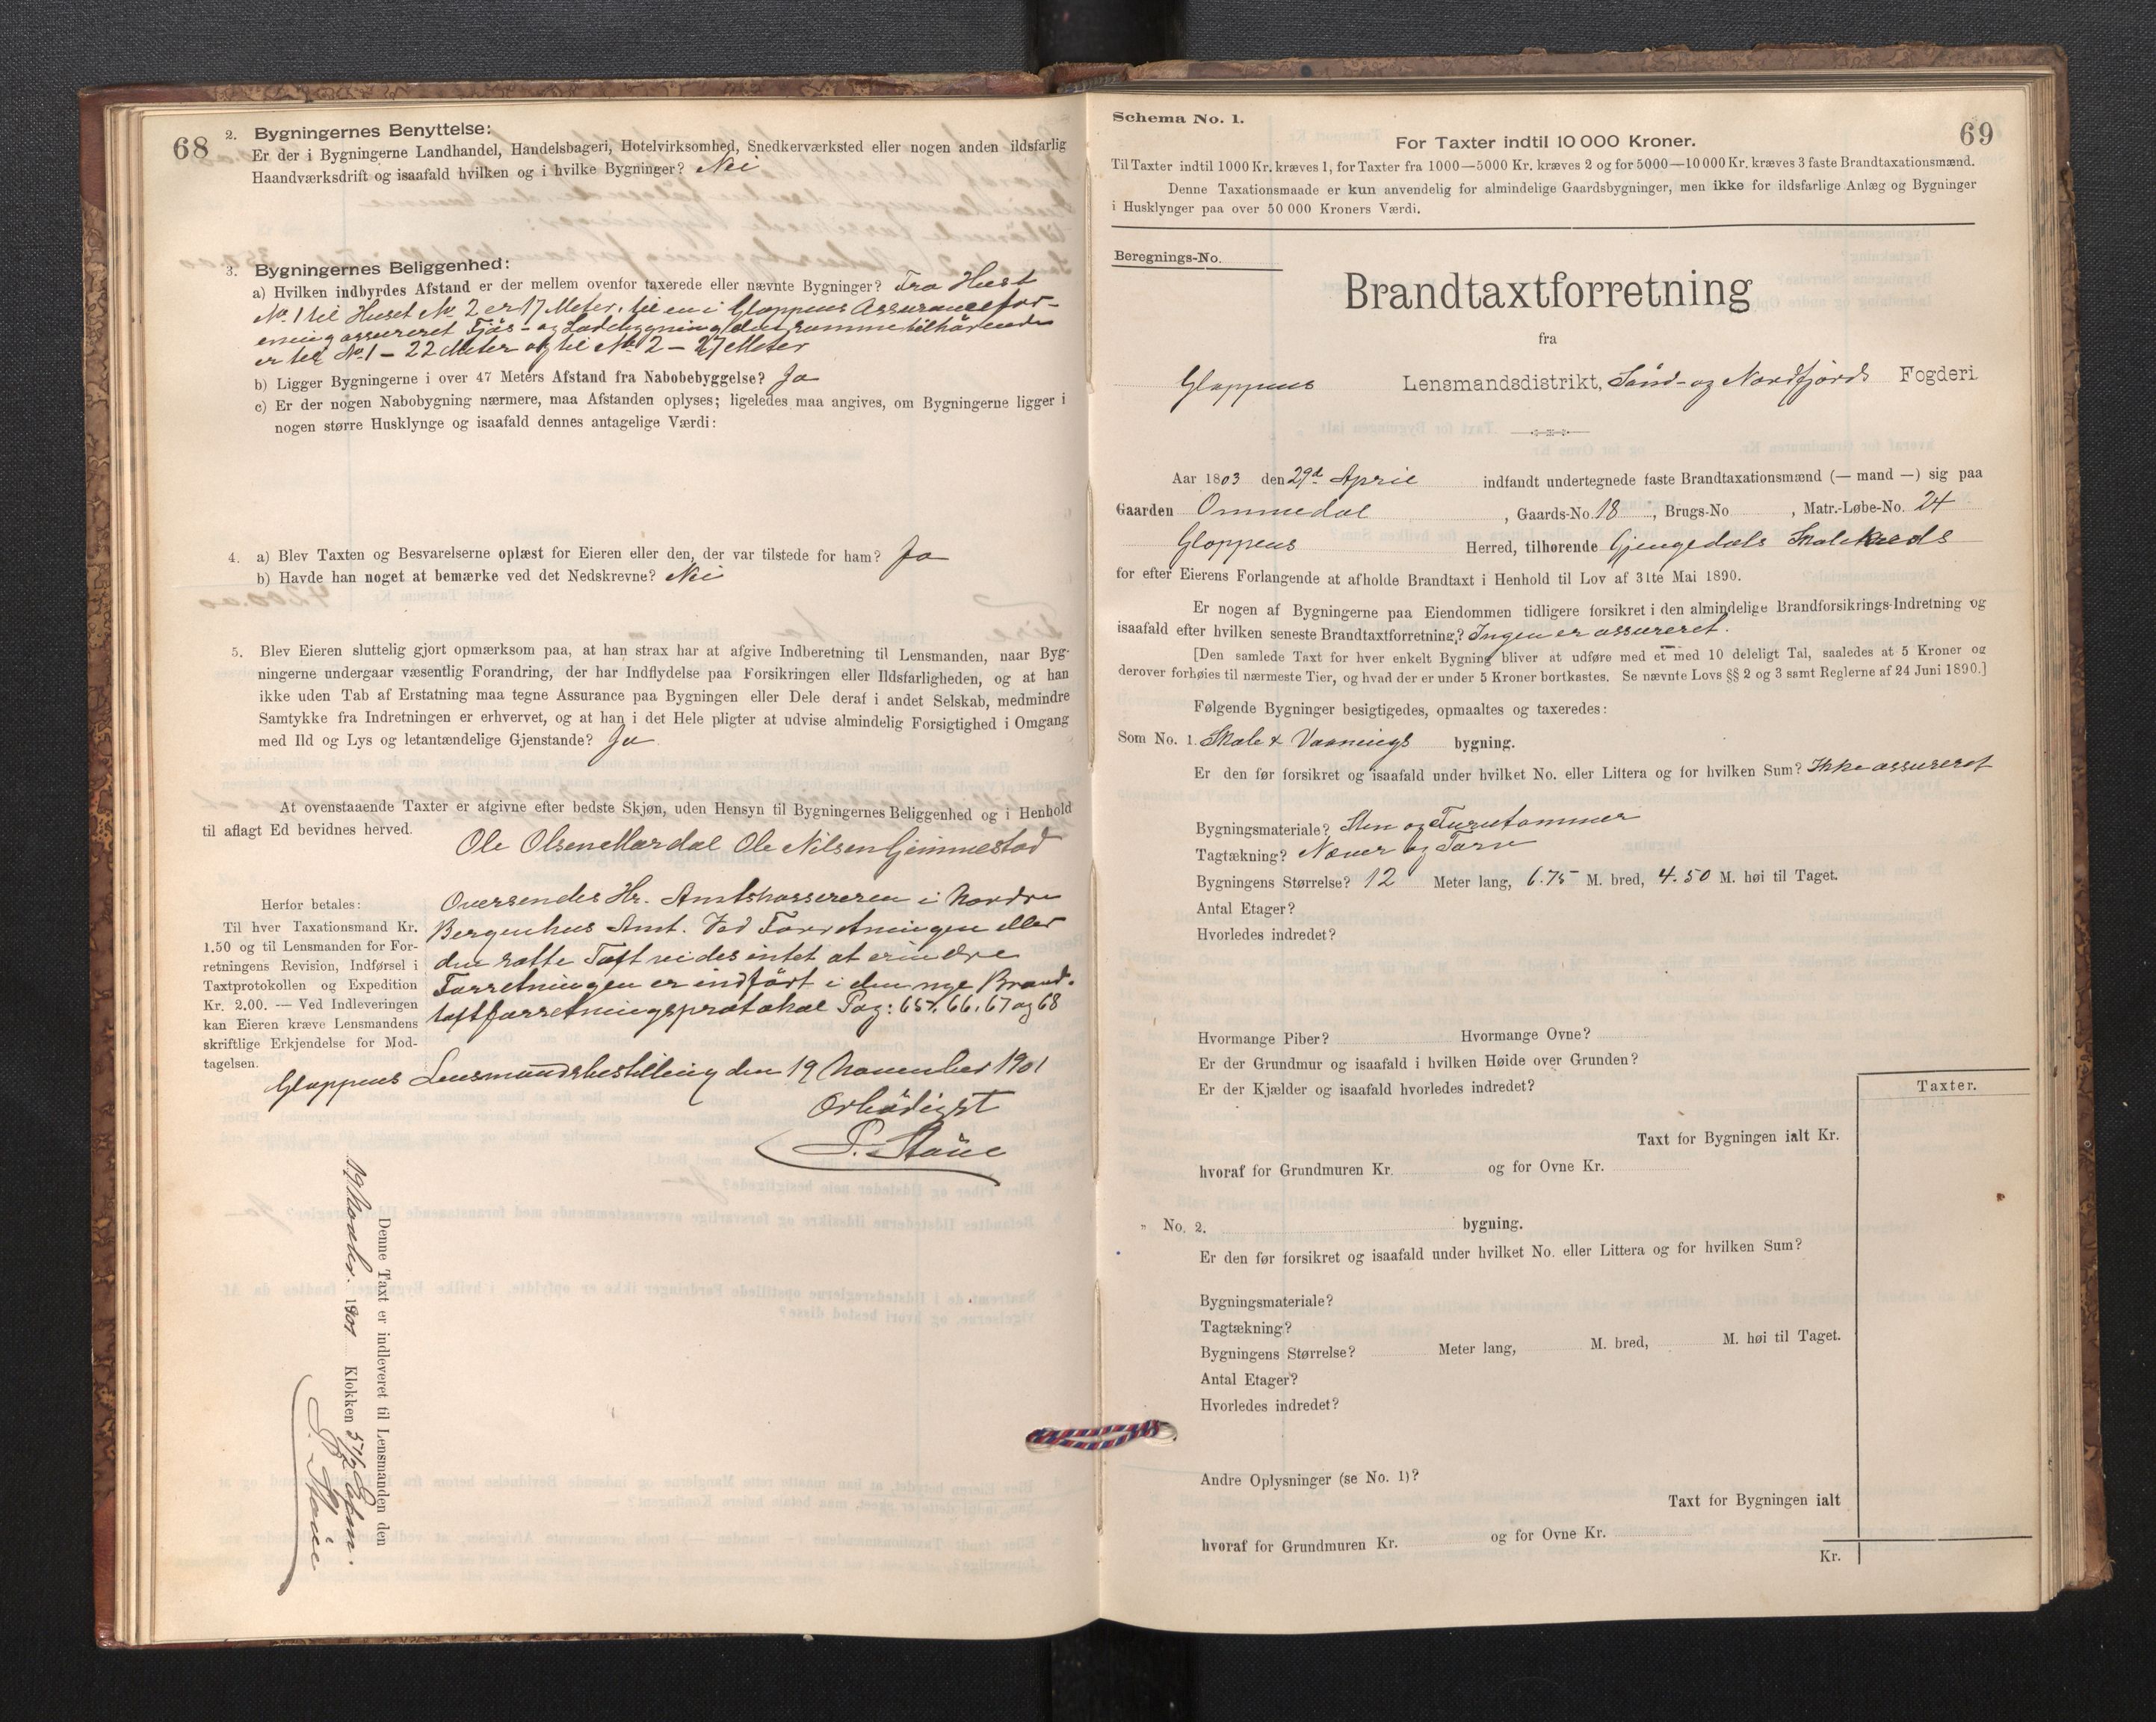 68
2. Bygningernes Benyttelse:
Er der i Bygningerne Landhandel, Handelsbageri, Hotelvirksomhed, Snedkerværksted eller nogen anden ildsfarlig
Haandværksdrift og isaafald hvilken og i hvilke Bygninger? Nei
3. Bygningernes Beliggenhed:
a) Hvilken indbyrdes Afstand er der mellem ovenfor taxerede eller nævnte Bygninger? Fra Huset
No. 1 til Huset No 2 er 17 Meter, til en i Gloppens Assurancefor-
ening assureret Fjøs- og Ladebygning det samme tilhørende
er til No 1 - 22 Meter og til No 2 - 27 Meter
b) Ligger Bygningerne i over 47 Meters Afstand fra Nabobebyggelse? Ja
c) Er der nogen Nabobygning nærmere, maa Afstanden oplyses; ligeledes maa angives, om Bygningerne ligger i
nogen større Husklynge og isaafald dennes antagelige Værdi:
4. a) Blev Taxten og Besvarelserne oplæst for Eieren eller den, der var tilstede for ham? Ja
b) Havde han noget at bemærke ved det Nedskrevne? Nei
5. Blev Eieren sluttelig gjort opmærksom paa, at han strax har at afgive Indberetning til Lensmanden, naar Byg-
ningerne undergaar væsentlig Forandring, der har Indflydelse paa Forsikringen eller Ildsfarligheden, og at han
ikke uden Tab af Erstatning maa tegne Assurance paa Bygningen eller Dele deraf i andet Selskab, medmindre
Samtykke fra Indretningen er erhvervet, og at han i det Hele pligter at udvise almindelig Forsigtighed i Omgang
med Ild og Lys og letantændelige Gjenstande? Ja
At ovenstaaende Taxter er afgivne efter bedste Skjøn, uden Hensyn til Bygningernes Beliggenhed og i Henhold
til aflagt Ed bevidnes herved.
Ole Olsen Mardal Ole Nilsen Gimmestad
Herfor betales:
Til hver Taxationsmand Kr.
1.50 og til Lensmanden for For-
retningens Revision, Indførsel i
Taxtprotokollen og Expedition
Kr. 2.00. — Ved Indleveringen
kan Eieren kræve Lensmandens
skriftlige Erkjendelse for Mod-
tagelsen.
Oversendes Hr. Amtskassereren i Nordre
Bergenhus Amt. Ved Forretningen eller
den satte Taxt vides intet at erindre
Forretningen er indført i den nye Brand-
taxtforretningsprotokol Pag: 65, 66, 67 og 68
Gloppens Lensmandsbestilling den 19 November 1901
Ærbødigst
P. Staue
Denne Taxt er indleveret til Lensmanden den
19 Novbr. 1901 Klokken 5 1/2 Efm.
P. Staue
69
Schema No. 1.
For Taxter indtil 10 000 Kroner.
Til Taxter indtil 1000 Kr. kræves 1, for Taxter fra 1000—5000 Kr. kræves 2 og for 5000—10 000 Kr. kræves 3 faste Brandtaxationsmænd.
Denne Taxationsmaade er kun anvendelig for almindelige Gaardsbygninger, men ikke for ildsfarlige Anlæg og Bygninger
i Husklynger paa over 50 000 Kroners Værdi.
Beregnings-No.
Brandtaxtforretning
fra
Gloppens Lensmandsdistrikt, Sønd- og Nordfjords Fogderi
Aar 1803 den 29d April indfandt undertegnede faste Brandtaxationsmænd (— mand —) sig paa
Gaarden Ommedal, Gaards-No. 18, Brugs-No , Matr.-Løbe-No. 24
Gloppens Herred, tilhørende Gjengedals Skolekreds
for efter Eierens Forlangende at afholde Brandtaxt i Henhold til Lov af 31te Mai 1890.
Er nogen af Bygningerne paa Eiendommen tidligere forsikret i den almindelige Brandforsikrings-Indretning og
isaafald efter hvilken seneste Brandtaxtforretning? Ingen er assureret.
[Den samlede Taxt for hver enkelt Bygning bliver at udføre med et med 10 deleligt Tal, saaledes at 5 Kroner og
derover forhøies til nærmeste Tier, og hvad der er under 5 Kroner bortkastes. Se nævnte Lovs §§ 2 og 3 samt Reglerne af 24 Juni 1890.]
Følgende Bygninger besigtigedes, opmaaltes og taxeredes:
Som No. 1. Skole & Vaanings bygning.
Er den før forsikret og isaafald under hvilket No. eller Littera og for hvilken Sum? Ikke assureret
Bygningsmateriale? Sten og Furutømmer
Tagtækning? Næver og Torv
Bygningens Størrelse? 12 Meter lang, 6.75 M. bred, 4.50 M. høi til Taget.
Antal Etager?
Hvorledes indredet?
Hvormange Piber? Hvormange Ovne?
Er der Grundmur og isaafald i hvilken Høide over Grunden?
Er der Kjælder og isaafald hvorledes indredet?
Taxter.
Taxt for Bygningen ialt Kr.
hvoraf for Grundmuren Kr. og for Ovne Kr.
" No. 2. bygning.
Er den før forsikret og isaafald under hvilket No. eller Littera og for hvilken Sum?
Bygningsmateriale?
Tagtækning?
Bygningens Størrelse? Meter lang, M. bred, M. høi til Taget.
Antal Etager?
Hvorledes indredet?
Andre Oplysninger (se No. 1)?
Taxt for Bygningen ialt
hvoraf for Grundmuren Kr. og for Ovne Kr.
Kr.